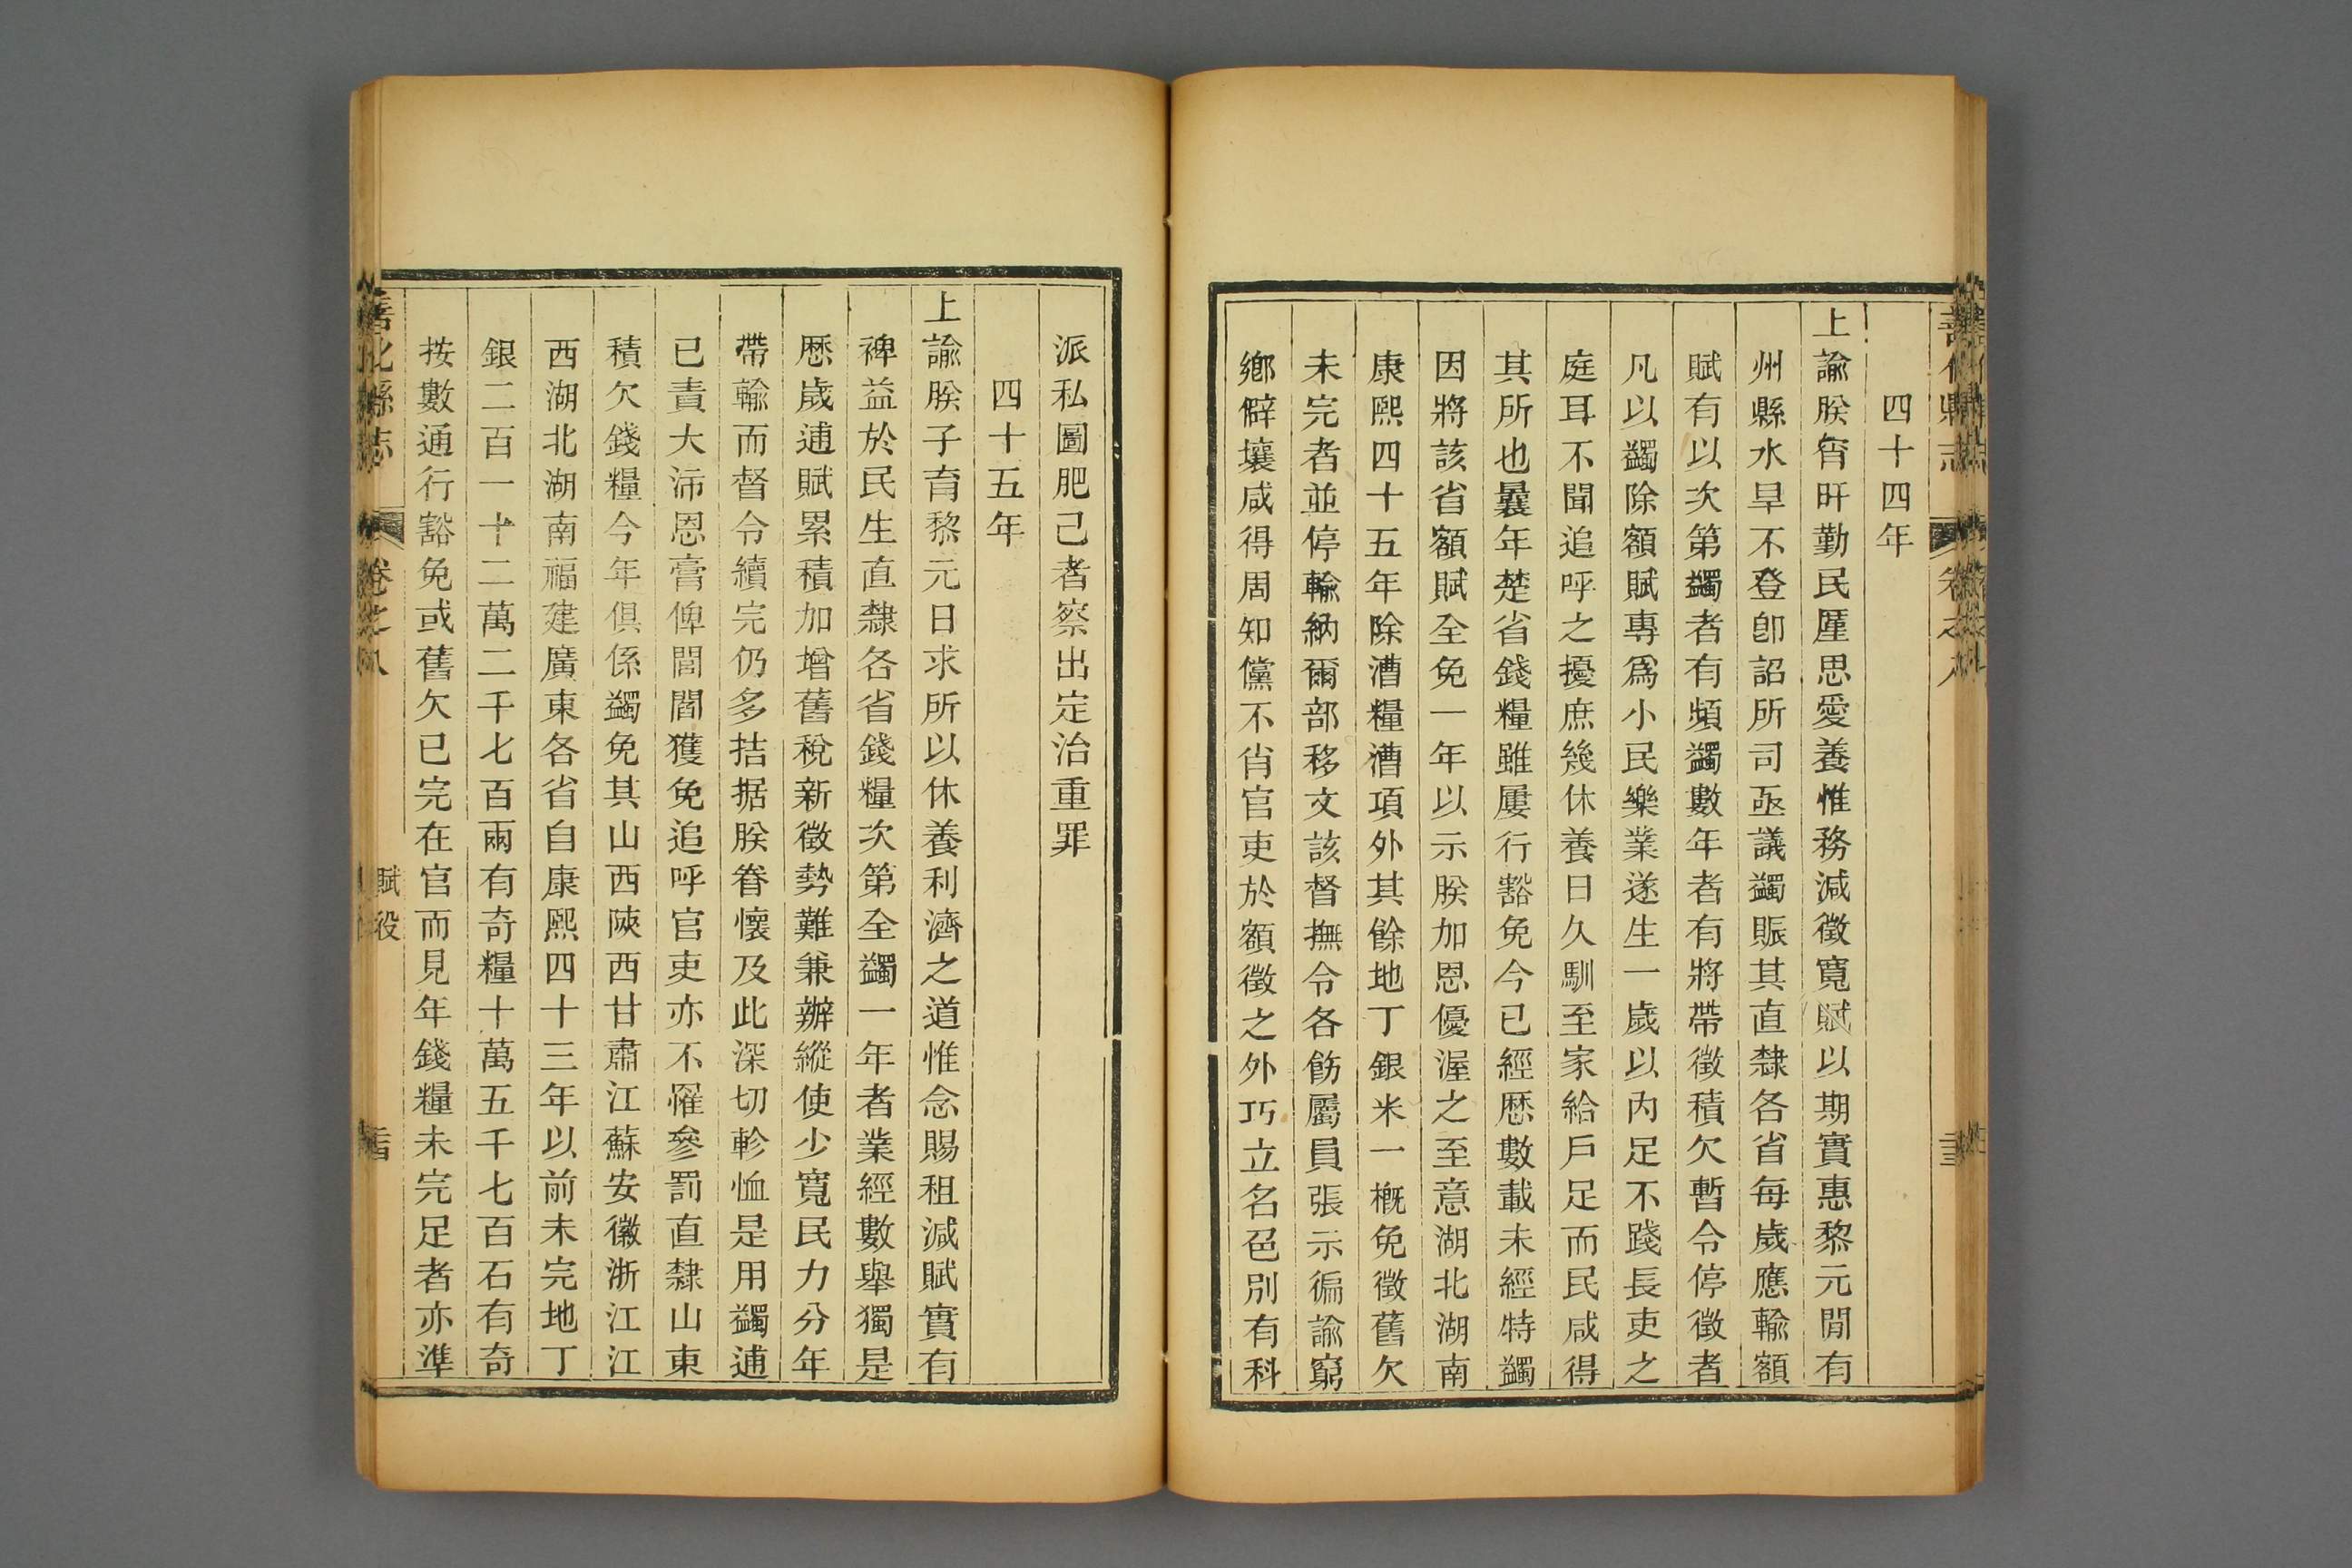 四十四年
上諭朕宵旰勤民厪思愛養惟務減徵寬賦以期實惠黎元閒有
州縣水旱不登卽詔所司亟議蠲賑其直隸各省每歲應輸額
賦有以次第蠲者有頻蠲數年者有將帶徵積欠暫令停徵者
凡以蠲除額賦專爲小民樂業遂生一歲以內足不踐長吏之
庭耳不聞追呼之擾庶幾休養日久馴至家給戶足而民咸得
其所也曩年楚省錢糧雖屢行豁免今已經歷數載未經特蠲
因將該省額賦全免一年以示朕加恩優渥之至意湖北湖南
康熙四十五年除漕糧漕項外其餘地丁銀米一槪免徵舊欠
未完者並停輸納爾部移文該督撫令各飭屬員張示徧諭窮
鄉僻壤咸得周知儻不肖官吏於額徵之外巧立名色別有科
派私圖肥己者察出定治重罪
四十五年
上諭朕子育黎元日求所以休養利濟之道惟念賜租減賦實有
裨益於民生直隸各省錢糧次第全蠲一年者業經數舉獨是
歷歲逋賦累積加增舊稅新徵勢難兼辦縱使少寬民力分年
帶輸而督令續完仍多拮据朕眷懷及此深切軫恤是用蠲逋
已責大沛恩膏俾閭閻獲免追呼官吏亦不罹參罰直隸山東
積欠錢糧今年俱係蠲免其山西陝西甘肅江蘇安徽浙江江
西湖北湖南福建廣東各省自康熙四十三年以前未完地丁
銀二百一十二萬二千七百兩有奇糧十萬五千七百石有奇
按數通行豁免或舊欠已完在官而見年錢糧未完足者亦準
縣志
卷之八
賦役